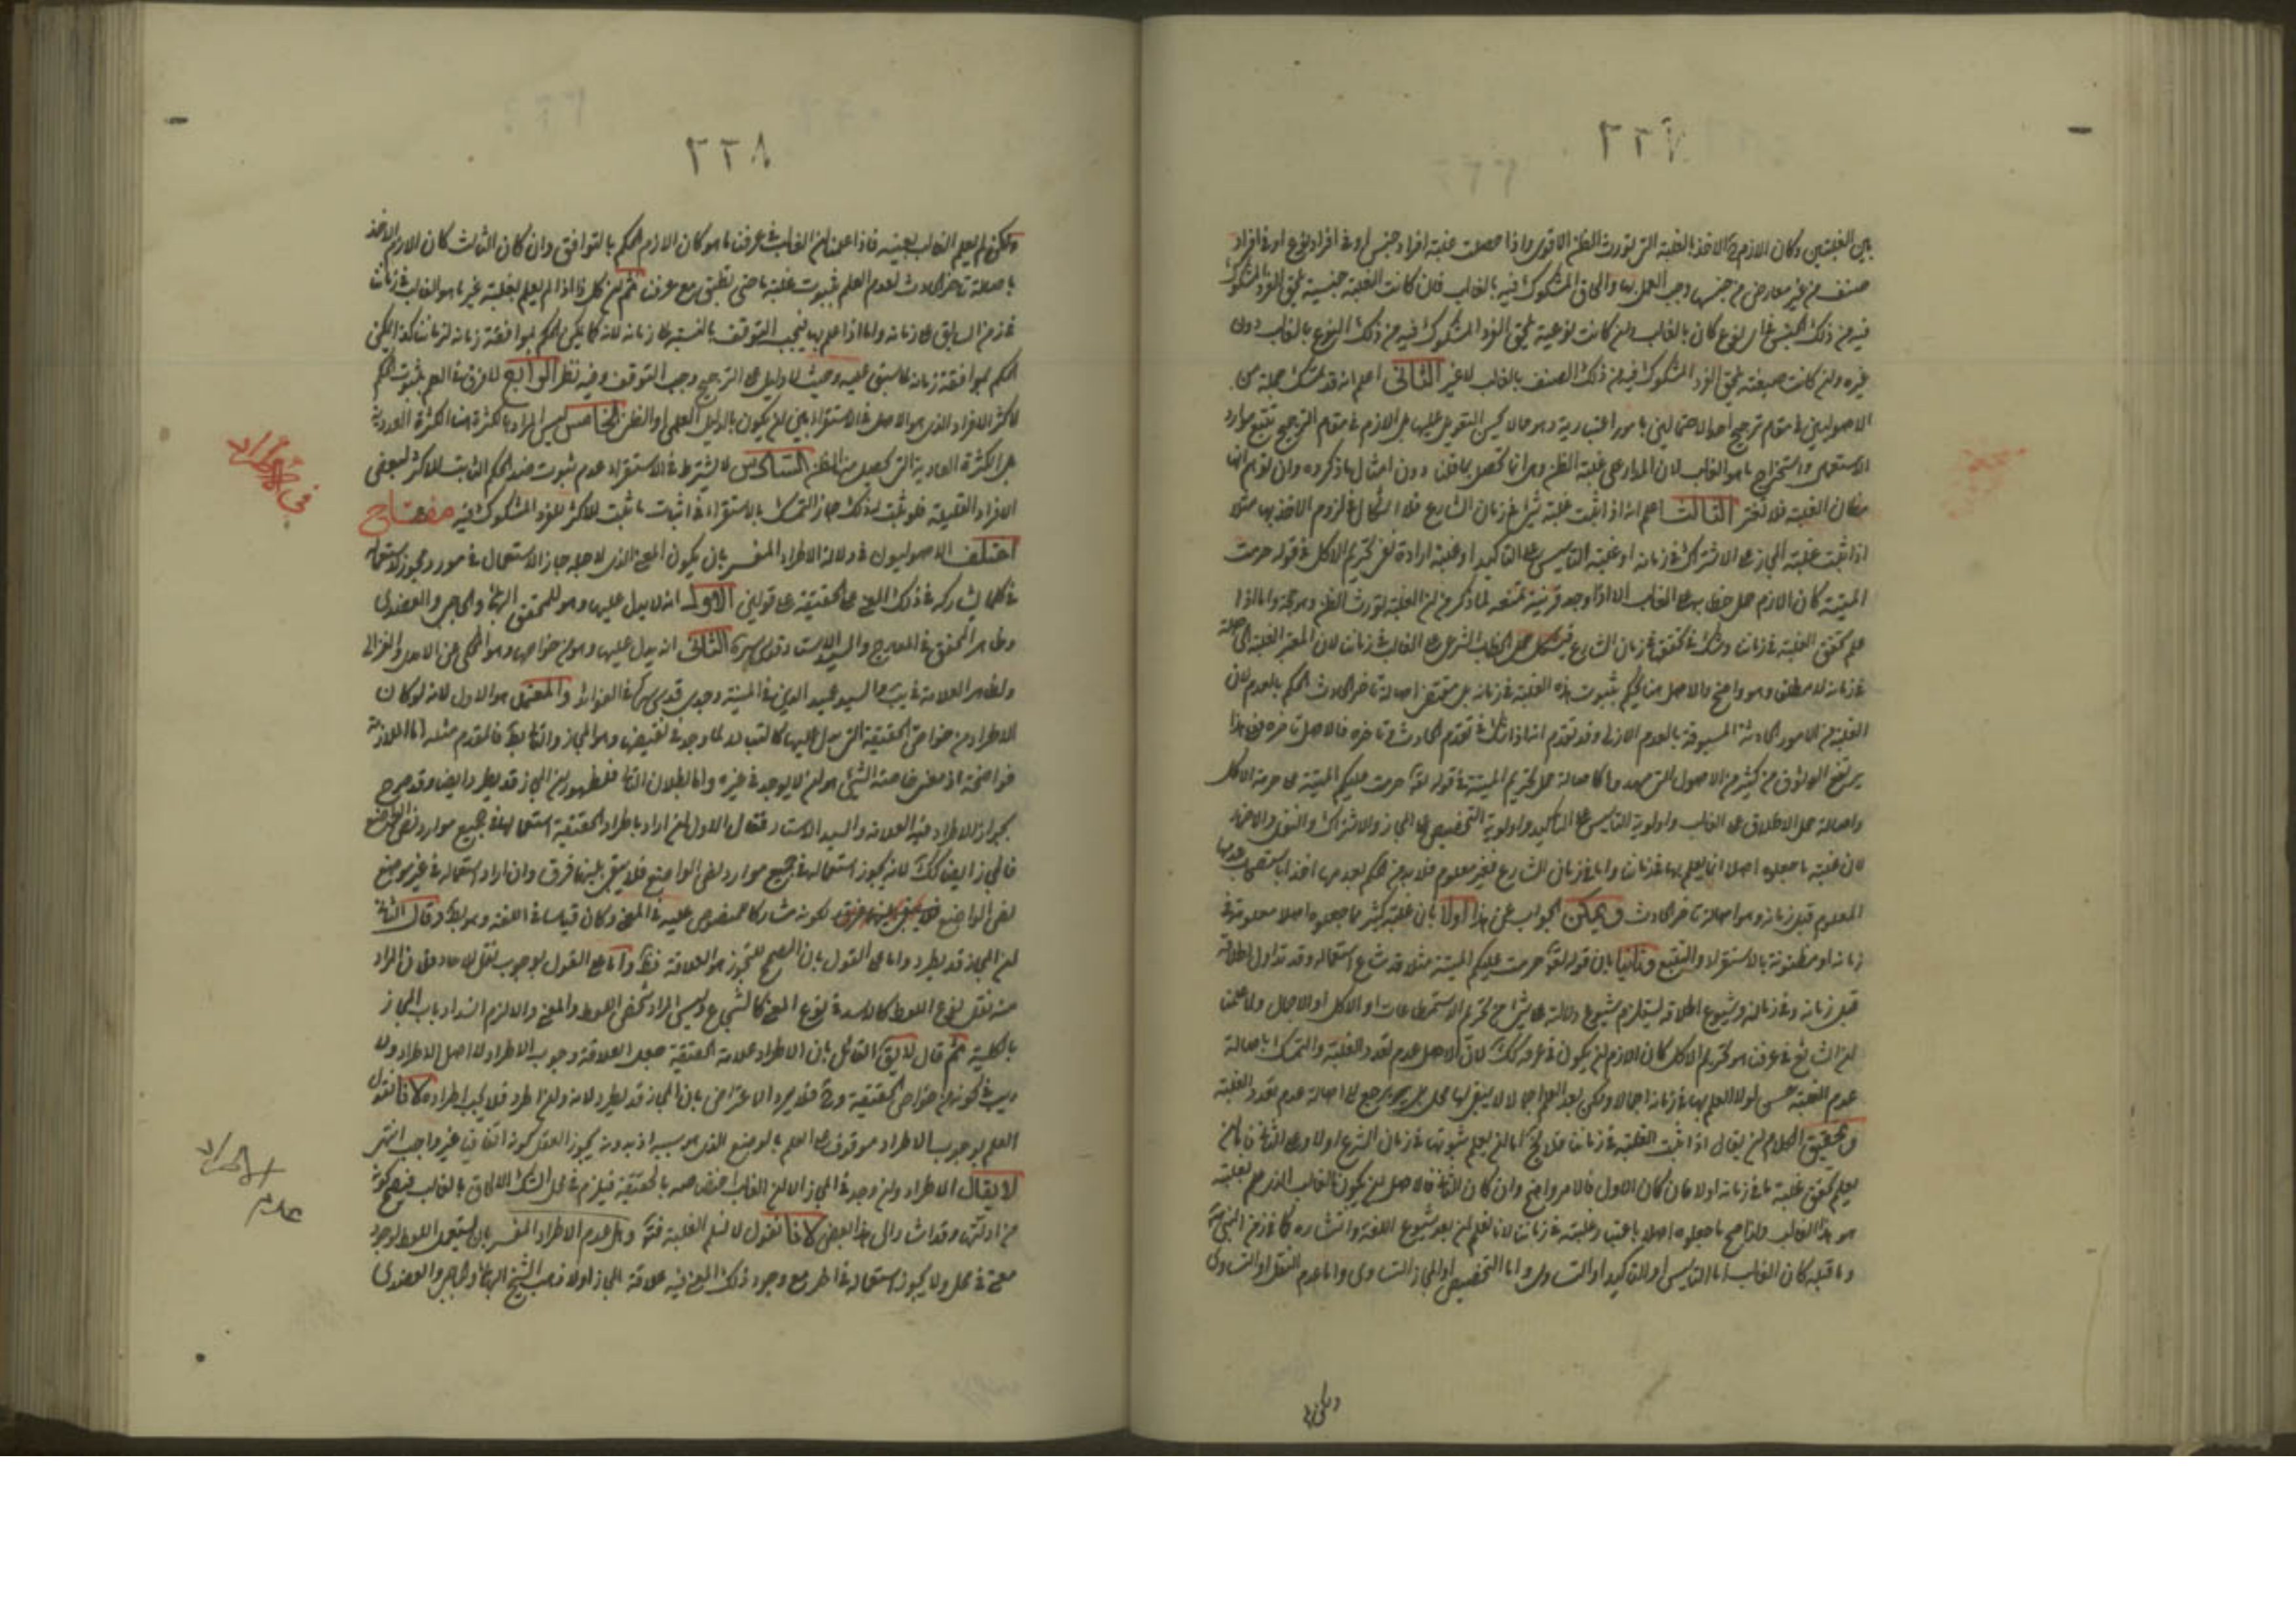 ٢٢٧
بين الغلبتين وكان اللازم ح الاخذ بالغلبة التى تورث الظن الاقوى واذا حصلت غلبة افراد جنس او فى افراد نوع او فى افراد
صنف من غير معارض من جنسها وجب العمل بها والحاق المشكوك فيه بالغالب فان كانت الغلبة جنسية يلحق الفرد المشكوك
فيه من ذلك الجنس فى اى نوع كان بالغالب وان كانت نوعية يلحق الفرد المشكوك فيه من ذلك النوع بالغالب دون
غيره وان كانت صنفية يلحق الفرد المشكوك فيه من ذلك الصنف بالغالب لا غير الثانى اعلم انه قد تمسك جملة من
الاصوليين فى مقام ترجيح احد الاحتمالين بامور اعتبارية وهو مما لا يحسن التعويل عليها بل اللازم فى مقام الترجيح تتبع موارد
الاستعمال واستخراج ما هو الغالب لان المدار على غلبة الظن وهى انما تحصل بما قلنا دون امثال ما ذكروه وان توهم انها
مظان الغلبة فلا تغتر الثالث اعلم انه اذا ثبت غلبة شئ فى زمان الشارع فلا اشكال فى لزوم الاخذ بها مثلا
اذا ثبت غلبة المجاز على الاشتراك فى زمانه او غلبة التاسيس على التاكيد او غلبة ارادة نفى تحريم الاكل فى قوله حرمت
الميتة كان اللازم حمل خطابه على الغالب الا اذا وجد قرينة تمنعه لما ذكر من ان الغلبة تورث الظن وهو حجة واما اذا
علم تحقق الغلبة فى زماننا وشك فى تحققه فى زمان الشارع فيشكل حمل الخطاب الشرعى على الغالب فى زماننا لان المعتبر الغلبة الحاصلة
فى زمانه لا مطلق وهو واضح والاصل هنا لا يحكم بثبوت هذه الغلبة فى زمانه بل مقتضى اصالة تاخر الحادث الحكم بالعدم لان
الغلبة من الامور الحادثة المسبوقة بالعدم الازلى وقد تقدم انه اذا شك فى تقدم الحادث وتاخره فالاصل تاخره فعلى هذا
يرتفع الوثوق من كثير من الاصول التى مهدوها كاصالة حمل تحريم الميتة فى قوله تعالى حرمت عليكم الميتة على حرمة الاكل
واصالة حمل الاطلاق على الغالب واولوية التاسيس على التاكيد واولوية التخصيص على المجاز والاشتراك والنقل والاضمار
لان غلبة ما جعلوه اصلا انما يعلم بها فى زماننا واما فى زمان الشارع فغير معلوم فلا بد من الحكم بعدمها اخذا باستصحاب عدمها
المعلوم قبل زمانه وهو اصالة تاخر الحادث ويمكن الجواب عن هذا اولا بان غلبة كثير مما جعلوه اصلا معلومة فى
زمانه او مظنونة بالاستقراء والتتبع وثانيا بان قوله تعالى حرمت عليكم الميتة مثلا قد شاع استعماله وقد تداول اطلاقه
قبل زمانه وفى زمانه وشيوع اطلاقه يستلزم شيوع دلالته على شئ اما تحريم الاستمتاعات او الاكل او الاجمال ولما علمنا
ان الشايع فى عرفنا هو تحريم الاكل كان اللازم ان يكون فى عرفه كك لان الاصل عدم تعدد الغلبة والتمسك باصالة
عدم الغلبة حسن لولا العلم بها فى زمانه اجمالا ولكن بعد العلم اجمالا لا يبقى لها محل بل يرجع الى اصالة عدم تعدد الغلبة
وتحقيق الكلام ان يقال اذا ثبت الغلبة فى زماننا فلا يخ اما ان يعلم ثبوتها فى زمان الشرع اولا وعلى الثانى فاما ان
يعلم تحقق غلبة ما فى زمانه اولا فان كان الاول فالامر واضح وان كان الثانى فالاصل ان يكون الغالب الذى علم بغلبته
هو هذا الغالب ولذا صح ما جعلوه اصلا باعتبار غلبته فى زماننا لانا نعلم ان بعد شيوع اللغة وانتشاره كما فى زمن النبى ص
وما قبله كان الغالب اما التاسيس او التاكيد او التساوى واما التخصيص او المجاز او التساوى واما عدم النقل او التساوى
ولكن لم
٢٢٨
ولكن لم يعلم الغالب بعينه فاذا علمنا ان الغالب فى عرفنا ما هو كان اللازم الحكم بالتوافق وان كان الثالث كان اللازم الاخذ
باصالة تاخر الحادث لعدم العلم بثبوت غلبة ما حتى يطبق مع عرفنا ثم ان كل ذا اذا لم يعلم بغلبة غير ما هو الغالب فى زماننا
فى زمن السابق على زمانه واما اذا علم بها فيجب التوقف بالنسبة الى زمانه لانه كما يمكن الحكم بموافقة زمانه لزماننا كذا يمكن
الحكم بموافقة زمانه لما سبق عليه وحيث لا دليل على الترجيح وجب التوقف وفيه نظر الرابع لا فرق فى العلم بثبوت الحكم
لاكثر الافراد الذى هو الاصل فى الاستقراء بين ان يكون بالدليل العلمى او الظنى الخامس ليس المراد بالكثرة هنا الكثرة العددية
بل الكثرة العادية التى يحصل منها الظن السادس لا يشترط فى الاستقراء عدم ثبوت ضد الحكم الثابت للاكثر لبعض
الافراد القليلة فلو ثبت لذلك جاز التمسك بالاستقراء فى اثبات ما ثبت للاكثر للفرد المشكوك فيه مفتاح
اختلف الاصوليون فى دلالة الاطراد المفسر بان يكون المعنى الذى لاجله جاز الاستعمال فى مورد مجوز لاستعماله
فى كلما يشاركه فى ذلك المعنى على الحقيقة على قولين الاول انه لا يدل عليها وهو للمحقق البهائى والحاجبى والعضدى
وظاهر المحقق فى المعارج والسيد الاستاد قدس سره الثانى انه يدل عليها وهو من خواصها وهو المحكى عن الامدى والغزالى
وظاهر العلامة فى يب والسيد عميد الدين فى المنية وجدى قدس سره فى الفوائد والمعتمد هو الاول لانه لو كان
الاطراد من خواص الحقيقة التى يدل عليها كالتبادر لما وجد فى نقيضها وهو المجاز والتالى بط فالمقدم مثله اما الملازمة
فواضحة اذ معنى خاصة الشئ هو ان لا يوجد فى غيره واما بطلان التالى فلظهور ان المجاز قد يطرد ايضا وقد صرح
بجواز الاطراد فيه العلامة والسيد الاستاد فقال الاول ان اراد باطراد الحقيقة استعمالها فى جميع موارد نص الواضع
فالمجاز ايضا كك لانه يجوز استعماله فى جميع موارد نص الواضع فلا يبقى بينهما فرق وان اراد استعماله فى غير موضع
نص الواضع لكونه مشاركا للمنصوص عليه فى المعنى وكان قياسا فى اللغة وهو بط وقال الثانى
ان المجاز قد يطرد واما على القول بان المصحح للتجوز هو العلاقة فظ واما على القول بوجوب نقل الاحاد فلان المراد
منه نقل نوع اللفظ كالاسد فى نوع المعنى كالشجاع وليس المراد شخص اللفظ والمعنى والا لزم انسداد باب المجاز
بالكلية ثم قال لا يق القائل بان الاطراد علامة الحقيقة جعل العلامة وجوب الاطراد لا اصل الاطراد ولا
ريب فى كونه من خواص الحقيقة وح فلا يرد الاعتراض بان المجاز قد يطرد لانه وان اطرد فلا يجب اطراده لانا نقول
العلم بوجوب الاطراد موقوف على العلم بالوضع الذى هو سببه اذ بدونه يجوز العقل كونه اتفاقى غير واجب انتهى
لا يقال الاطراد وان وجد فى المجاز الا ان الغالب اختصاصه بالحقيقة فيلزم فى محل الشك الالحاق بالغالب فيصح كونه
من ادلتها وقد اشار الى هذا البعض لانا نقول لا نسلم الغلبة فت وهل عدم الاطراد المفسر بان يستعمل اللفظ لوجود
معنى فى محل ولا يجوز استعماله فى اخر مع وجود ذلك المعنى فيه علامة المجاز اولا ذهب الشيخ البهائى والحاجبى والعضدى
فى الاطراد
عدم الاطراد